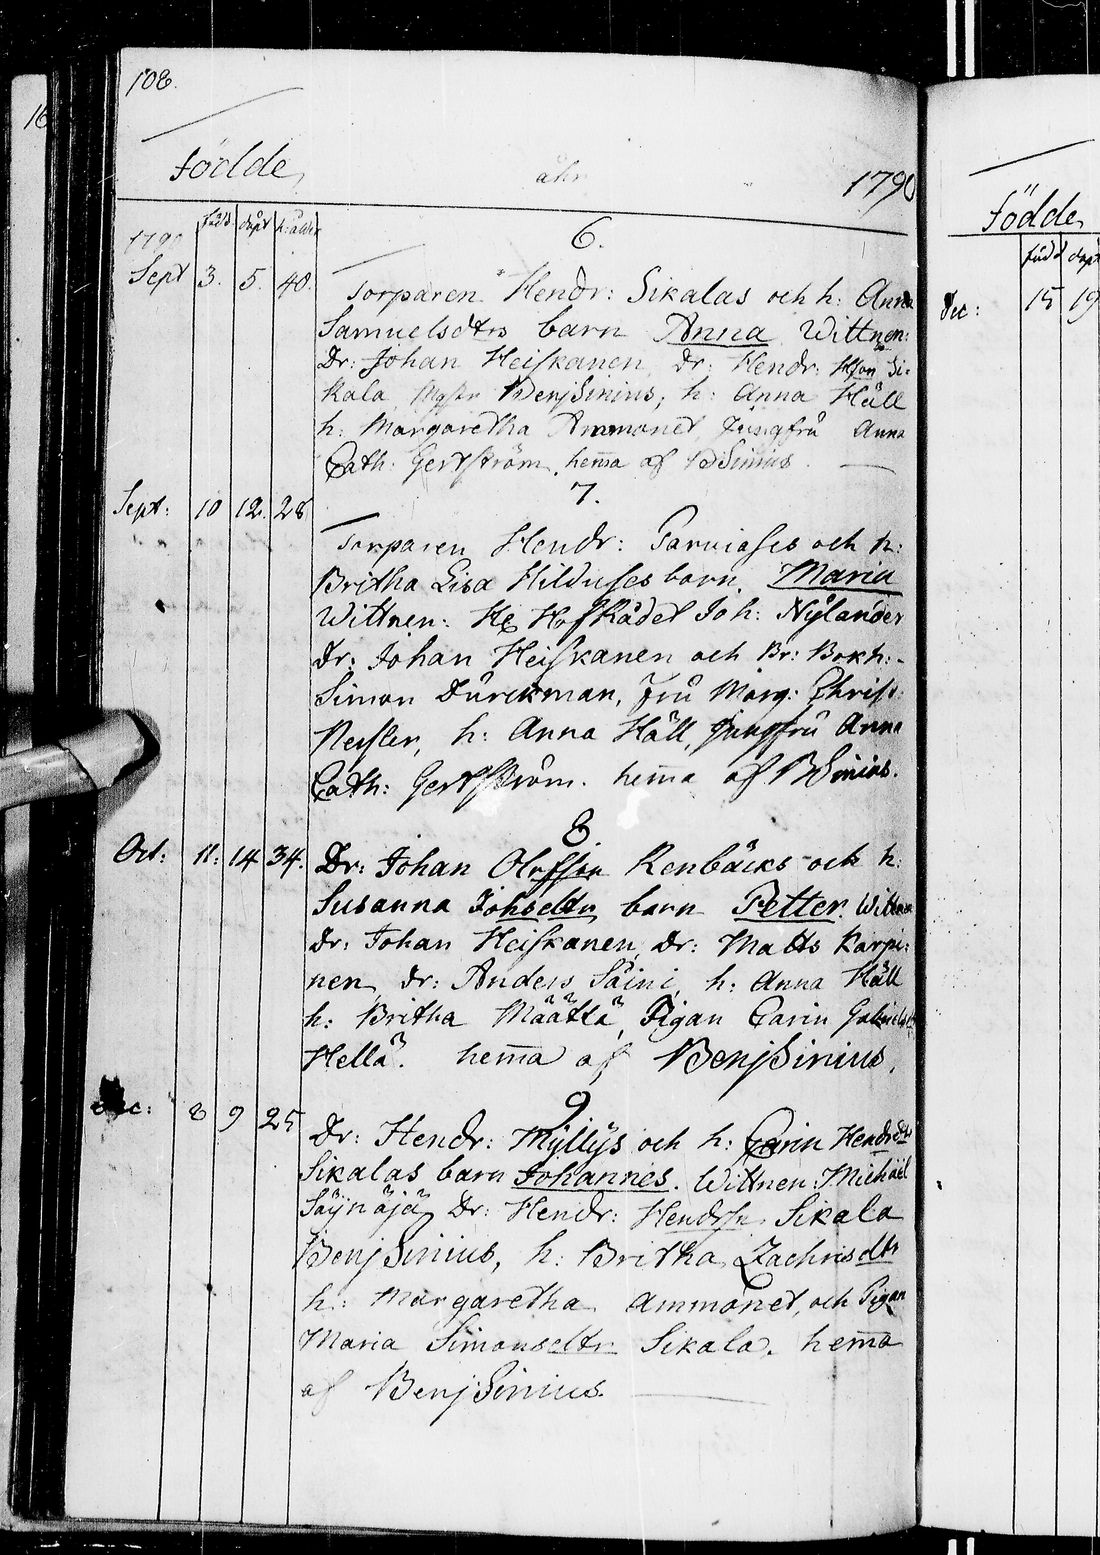 108.
16
Födde, åhr 1790
född döpt h: ålder
1790
6.
Sept 3. 5. 40.
Torparen Hendr: Sikalas och h: Anna
Samuelsdtrs barn Anna Wittnen:
Dr: Johan Heiskanen, Dr: Hendr: Hson Si-
kala, BenjSinius, h: Anna Häll
h: Margaretha Ammonet, Jungfru Anna
Cath: Gertström. hem̄a af BSinius.
7.
Sept: 10 12. 28
Torparen Hendr: Parviases och h:
Britha Lisa Hilduses barn Maria
Wittnen: Hr HofRådet Joh: Nÿlander
Dr: Johan Heiskanen och Br: Bokh:
Simon Dürckman, Fru Marg: Christ:
h: Anna Häll, Jungfru Anna
Cath: Gertström. hem̄a af BSinius.
8
Oct: 11: 14 34.
Dr: Johan Olofsson Renbäcks och h:
Susanna Johsdtr barn Petter. Wittnen
Dr: Johan Heiskanen, Dr: Matts Karpi-
nen, dr: Anders Säini, h: Anna Häll
h: Britha Määttä, Pigan Carin Gabrielsdtr
Hellä. hem̄a af BenjSinius.
9
Dec: 8 9 25
Dr: Hendr: Mÿllÿs och h: Carin Hendrsdtr
Sikalas barn Johannes. Wittnen: Michäel
Säÿnäjä, Dr: Hendr: Hendrsn Sikala
BenjSinius, h: Britha Zachrisdtr
h: Margaretha Ammonet, och Pigan
Maria Simonsdtr Sikala. hem̄a
af BenjSinius.
Födde
född döpt
Dec: 15 19